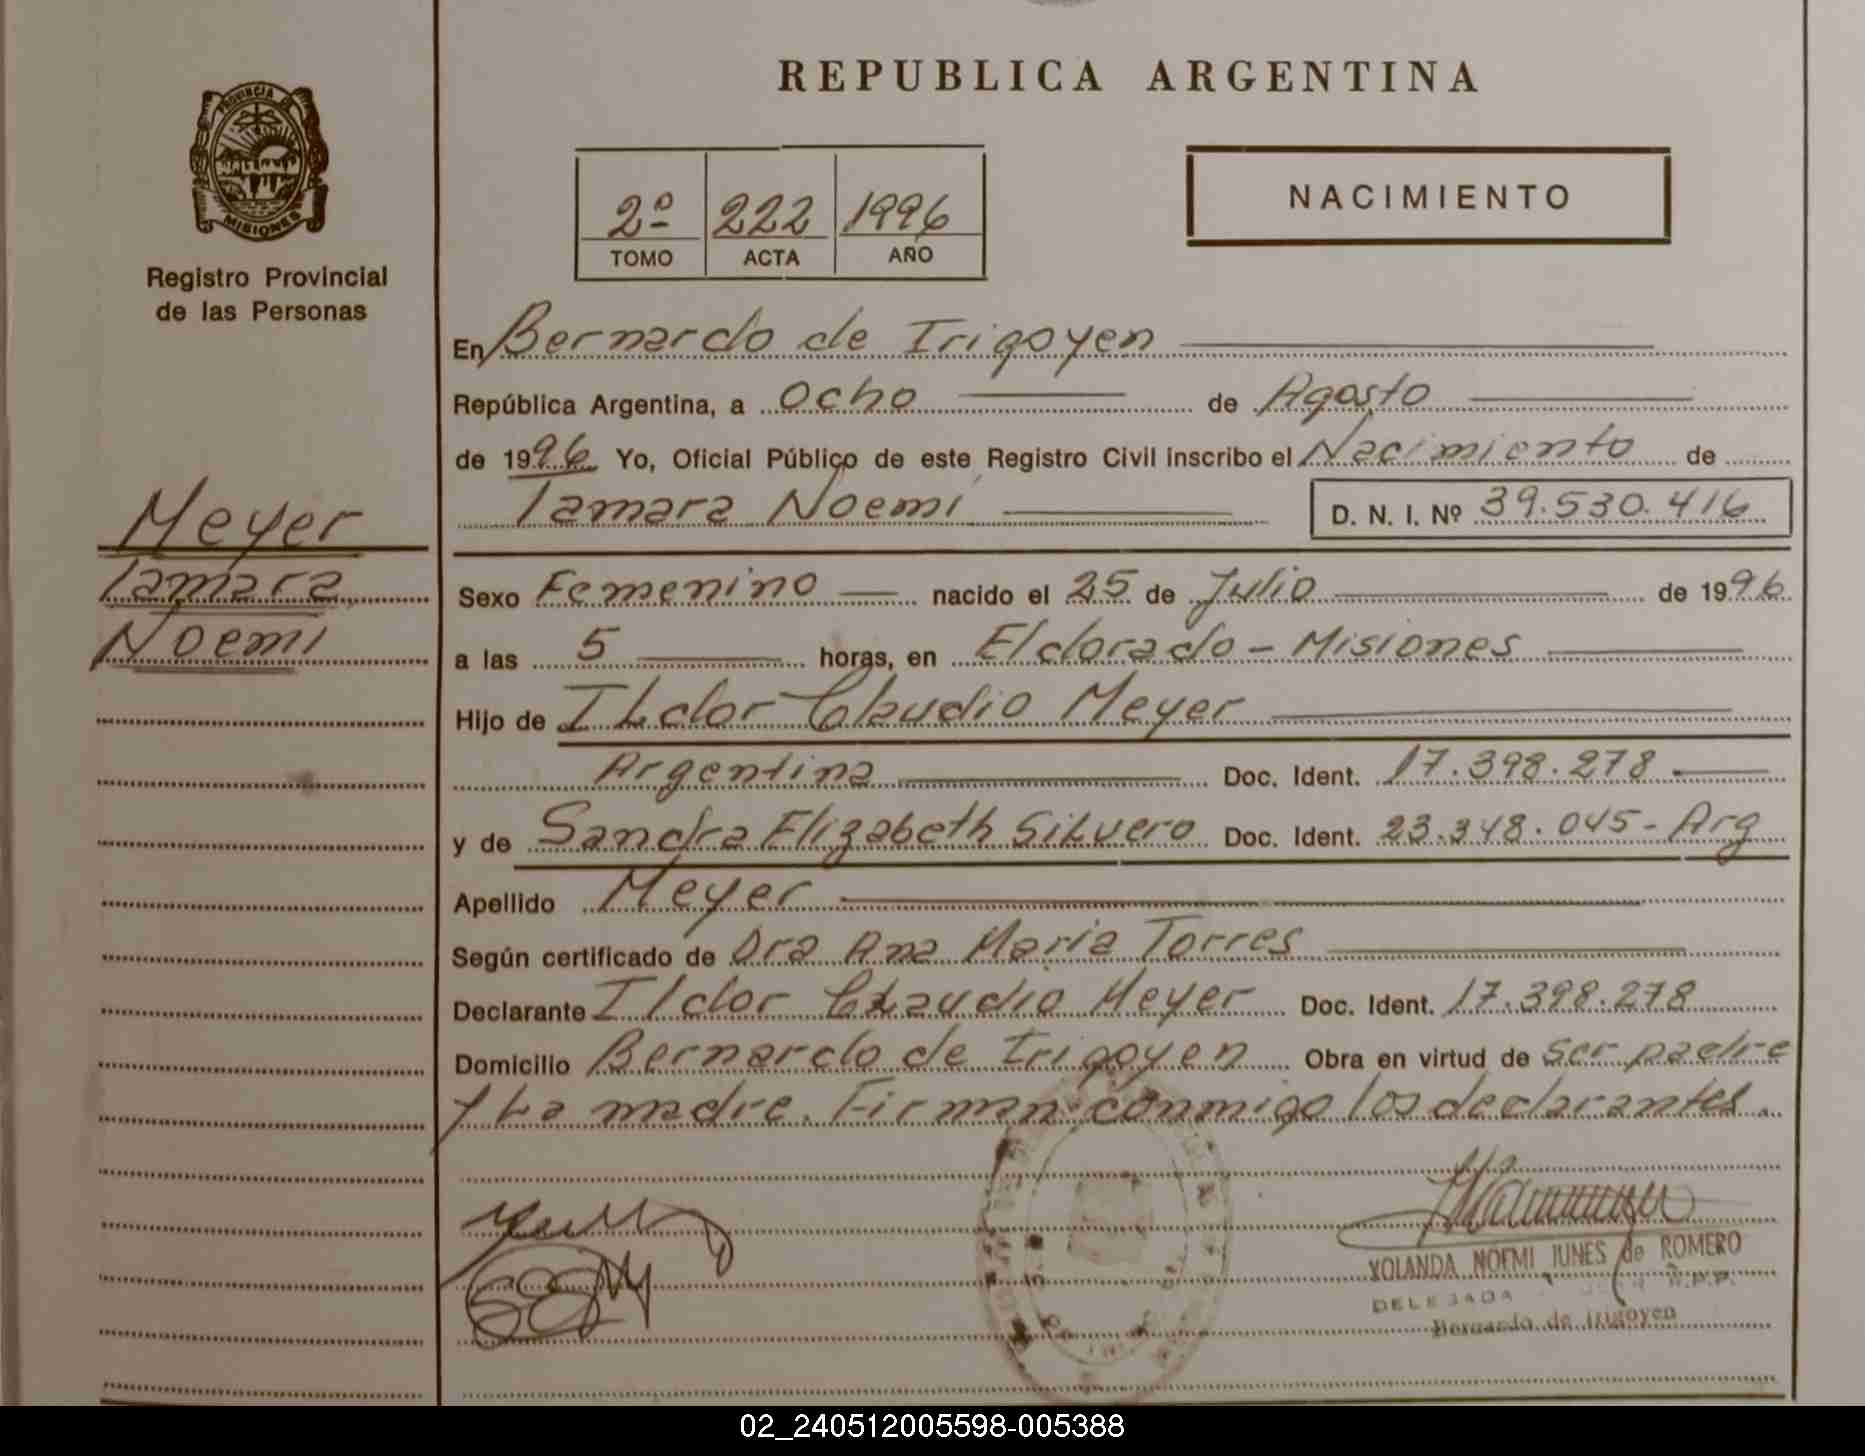 REPUBLICA ARGENTINA
PROVINCIA DE
MISIONES
Registro Provincial
de las Personas
2º 222 1996
TOMO ACTA AÑO
NACIMIENTO
En Bernardo de Irigoyen
República Argentina, a Ocho de Agosto
de 1996 Yo, Oficial Público de este Registro Civil inscribo el Nacimiento de
Tamara Noemi D. N. I. Nº 39.530.416
Meyer
Tamara
Noemi
Sexo Femenino nacido el 25 de Julio de 1996
a las 5 horas, en Eldorado - Misiones
Hijo de ILdor Claudio Meyer
Argentina Doc. Ident. 17.398.278
y de Sandra Elizabeth SiLvero Doc. Ident. 23.348.045 - Arg
Apellido Meyer
Según certificado de Dra Ana Maria Torres
Declarante Ildor CLaudio Meyer Doc. Ident. 17.398.278
Domicilio Bernardo de Irigoyen Obra en virtud de ser padre
y La madre. Firman conmigo los declarantes.
YOLANDA NOEMI JUNES de ROMERO
DELEGADA R.P.P.
Bernardo de Irigoyen
02_240512005598-005388